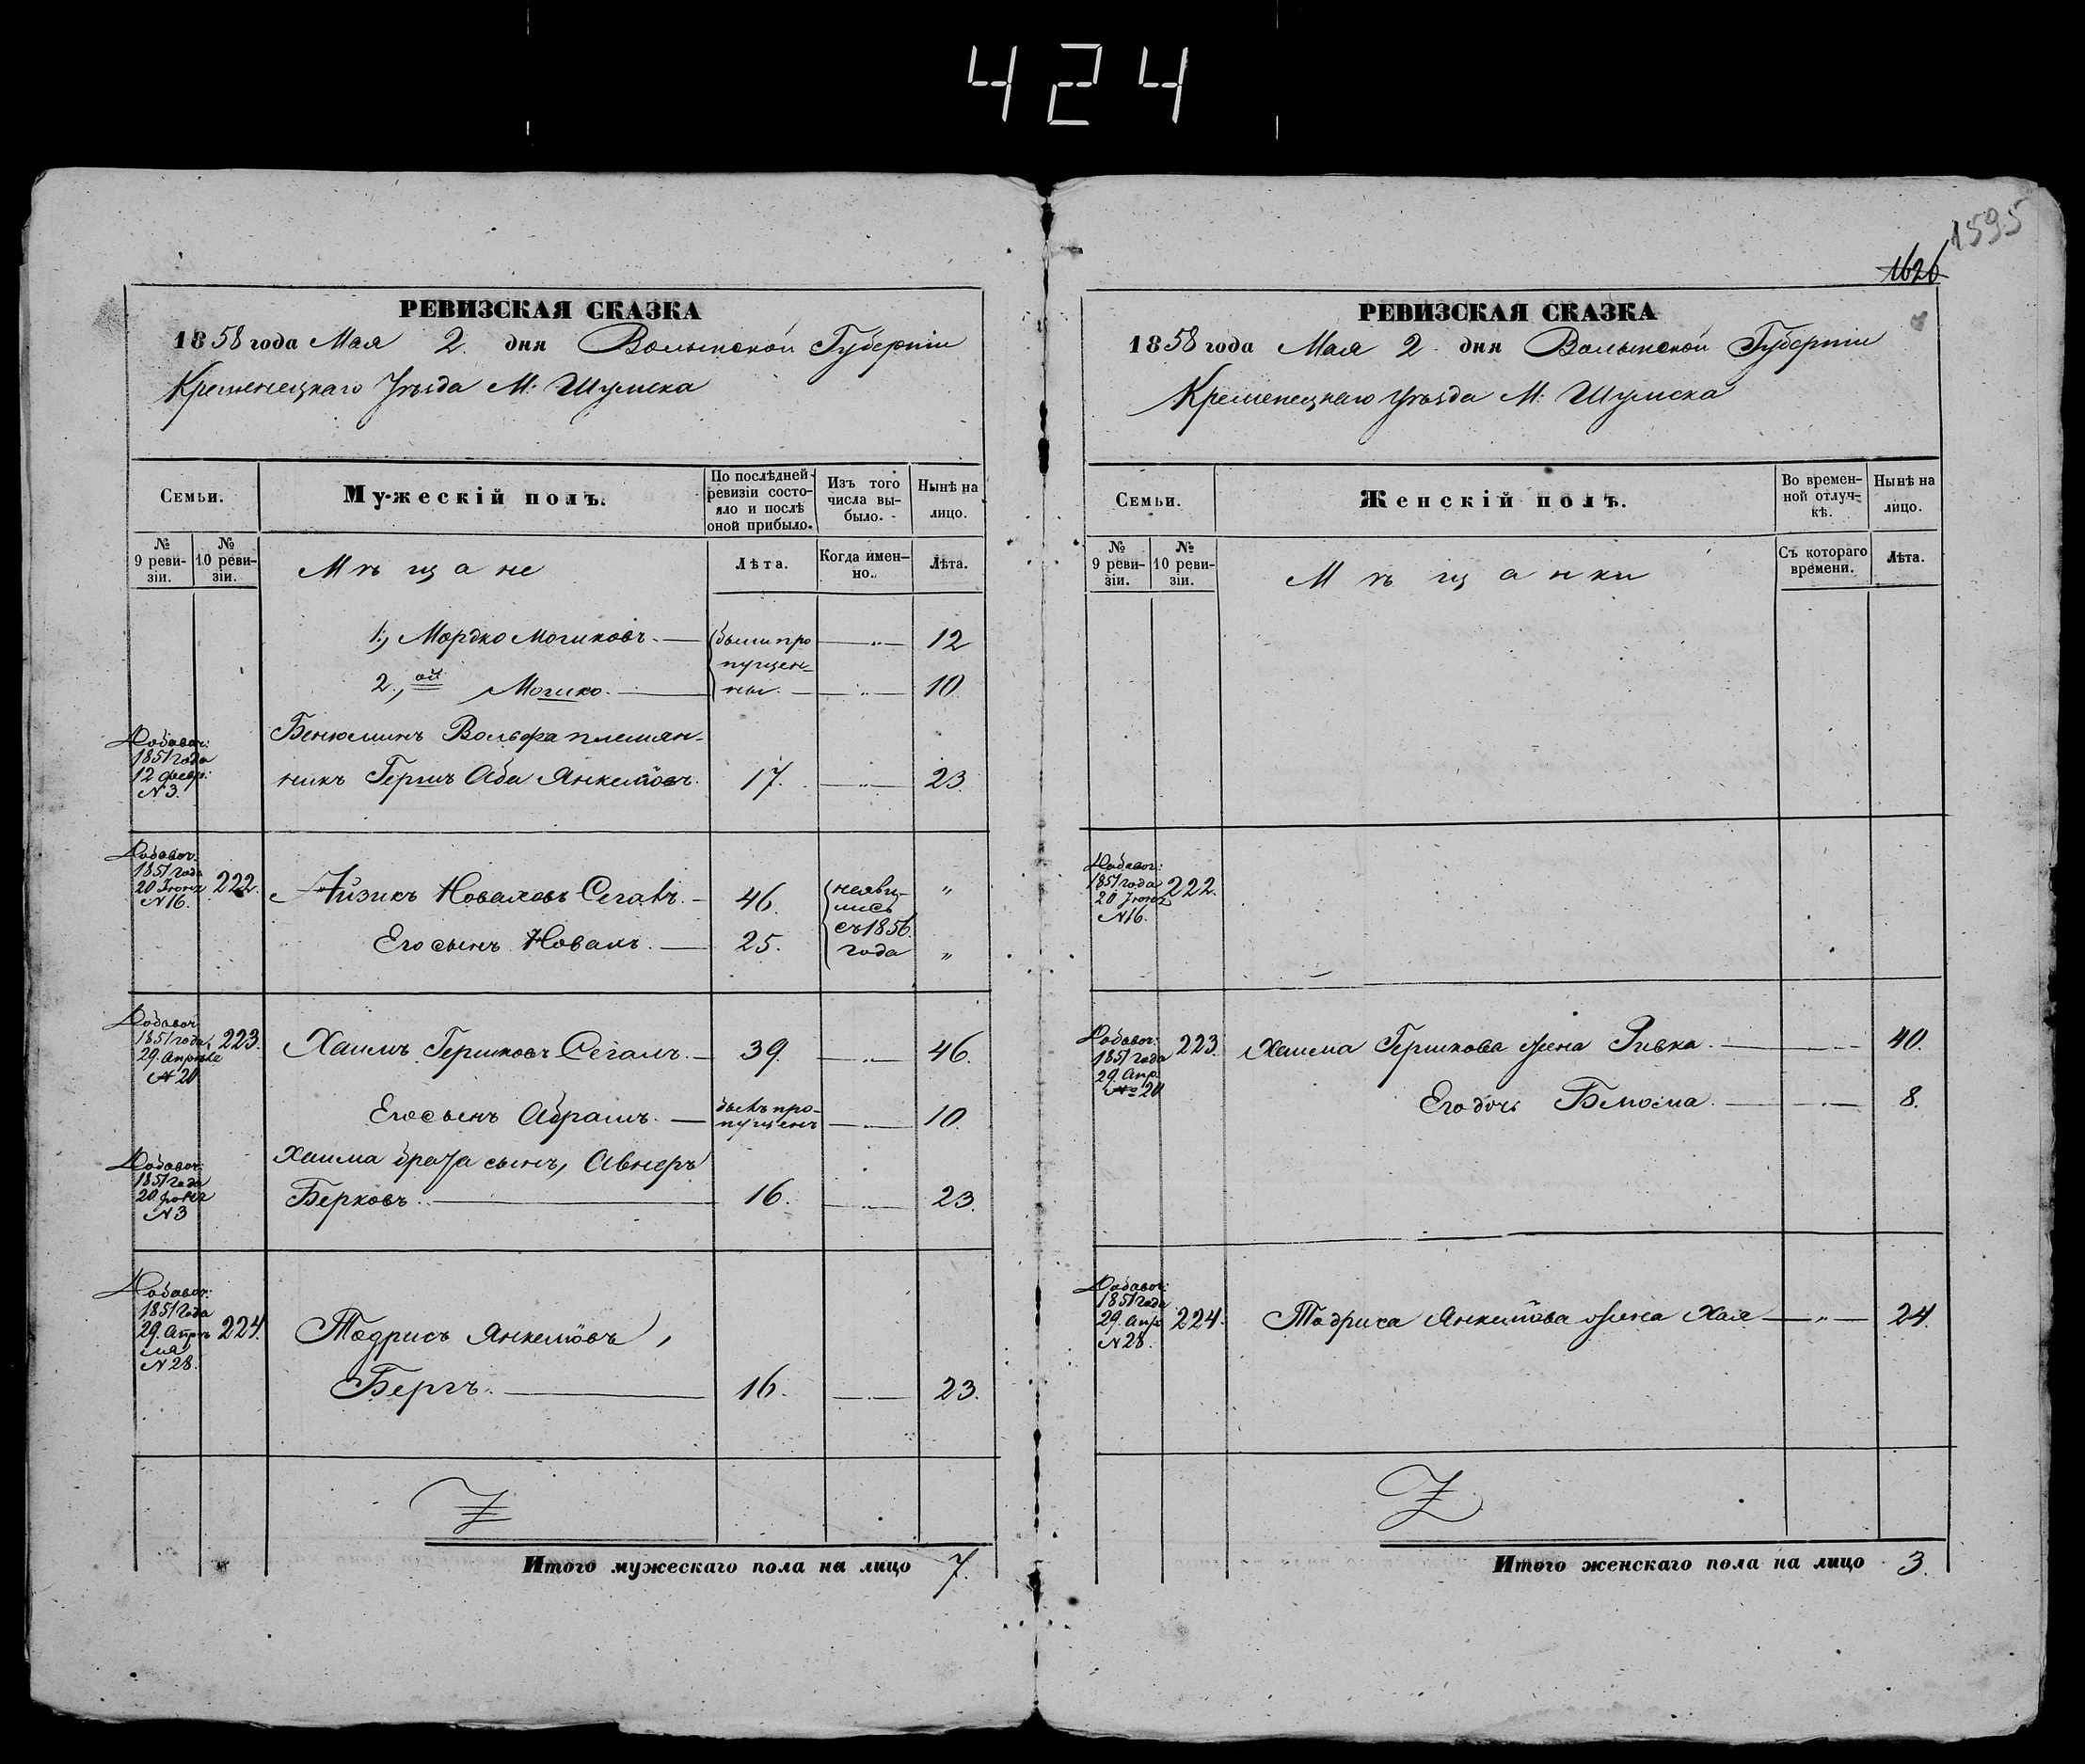 424
1595
1626
РЕВИЗСКАЯ СКАЗКА
1858 года Мая 2. дня Волынской Губерніи
Кременецкаго Уѣзда М. Шумска
Семьи.
Мужескій полъ.
По послѣдней ревизіи состояло и послѣ оной прибыло.
Изъ того числа выбыло.
Нынѣ на лицо.
№ 9 ревизіи.
№ 10 ревизіи.
Мѣщане
Лѣта.
Когда именно.
Лѣта.
1., Мордко Мошковъ. — были про — „ — 12
пущен-
2., ой Мошко. — ны. — „ — 10
Добавоч: 1851 года 12 февр: N 3.
Бенюминъ Вольфа племян-
никъ Гершъ Аба Янкелiовъ. 17. — „ — 23.
Добавоч: 1851 года 20 Іюня N 16.
222. Айзикъ Новаховъ Сегалъ. — 46. неяви- „
лись
съ 1856.
Его сынъ Новахъ. — 25. года „
Добавоч: 1851 года 29. Апрѣля N 20
223. Хаимъ Гершковъ Сегалъ. — 39. — „ — 46.
Его сынъ Абрамъ. — былъ про-
пущенъ — „ — 10.
Добавоч: 1851 года 20 N 3
Хаима брата сынъ, Авнеръ
Берковъ. — 16. — „ — 23.
Добавоч: 1851 года 29. Апрѣля N 28.
224. Тодрисъ Янкелiовъ,
Бергъ. — 16. — „ — 23.
Итого мужескаго пола на лицо 7.
РЕВИЗСКАЯ СКАЗКА
1858 года Мая 2. дня Волынской Губерніи
Кременецкаго уѣзда М. Шумска
Семьи.
Женскій полъ.
Во временной отлучкѣ.
Нынѣ на лицо.
№ 9 ревизіи.
№ 10 ревизіи.
Мѣщанки
Съ котораго времени.
Лѣта.
Добавоч: 1851 года 20 Іюня N 16.
222.
Добавоч: 1851 года 29. Апр. № 20
223. Хаима Гершкова жена Ривка. — „ — 40.
Его дочь Блюма. — „ — 8.
Добавоч: 1851 года 29. Апр N 28.
224. Тодриса Янкелiова жена Хая — „ — 24.
Итого женскаго пола на лицо 3.